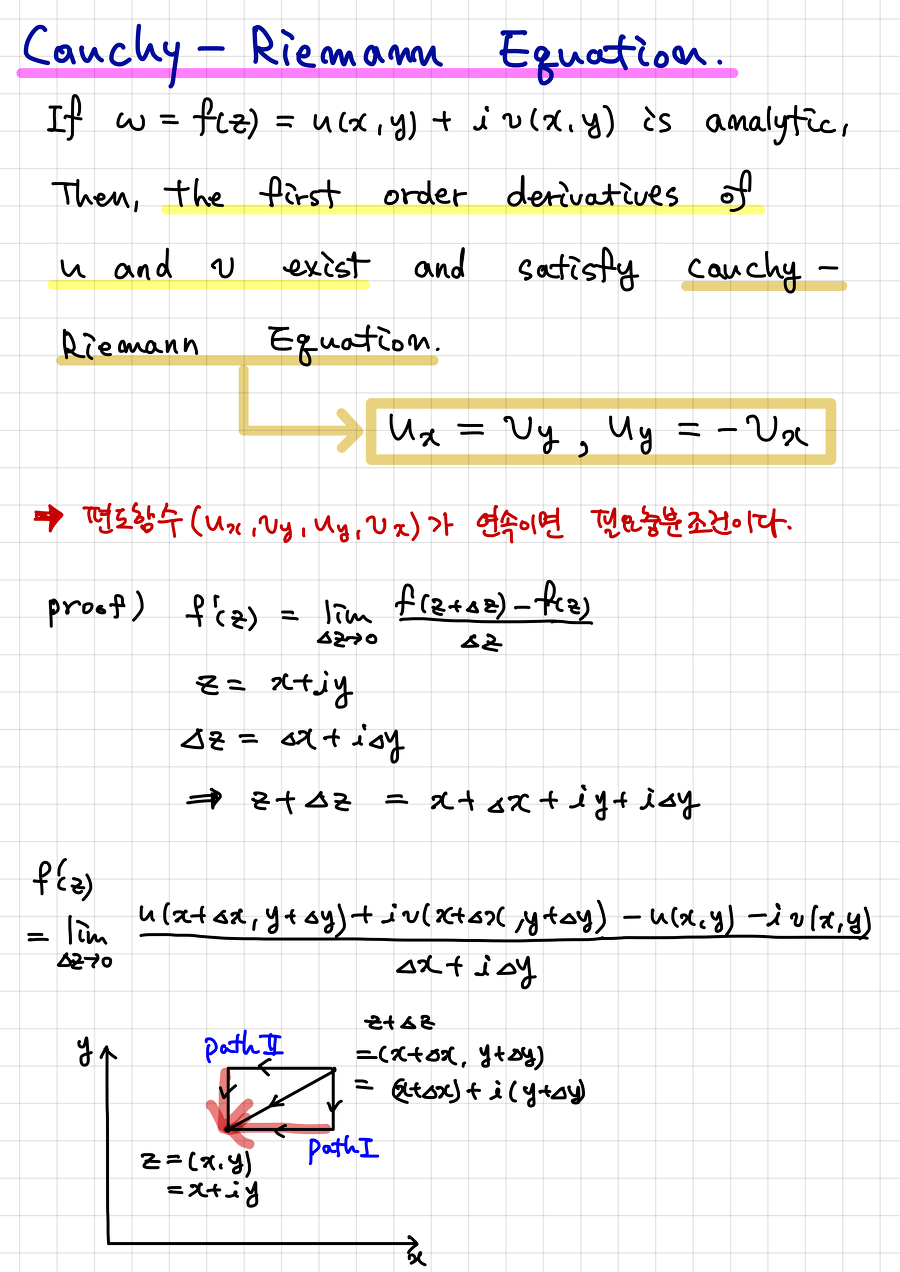 Cauchy - Riemann Equation.
If ω = f(z) = u(x, y) + i v(x, y) is analytic,
Then, the first order derivatives of
u and v exist and satisfy cauchy -
Riemann Equation.
u_x = v_y , u_y = - v_x
➡ 편도함수 (u_x, v_y, u_y, v_x)가 연속이면 필요충분조건이다.
proof) f'(z) = lim_{Δz→0} (f(z+Δz) - f(z)) / Δz
z = x+iy
Δz = Δx + iΔy
⇒ z + Δz = x + Δx + iy + iΔy
f'(z)
= lim_{Δz→0} (u(x+Δx, y+Δy) + i v(x+Δx, y+Δy) - u(x,y) - i v(x,y)) / (Δx + iΔy)
z+Δz
= (x+Δx, y+Δy)
= (x+Δx) + i(y+Δy)
y
path Ⅱ
path Ⅰ
z = (x, y)
= x + iy
x